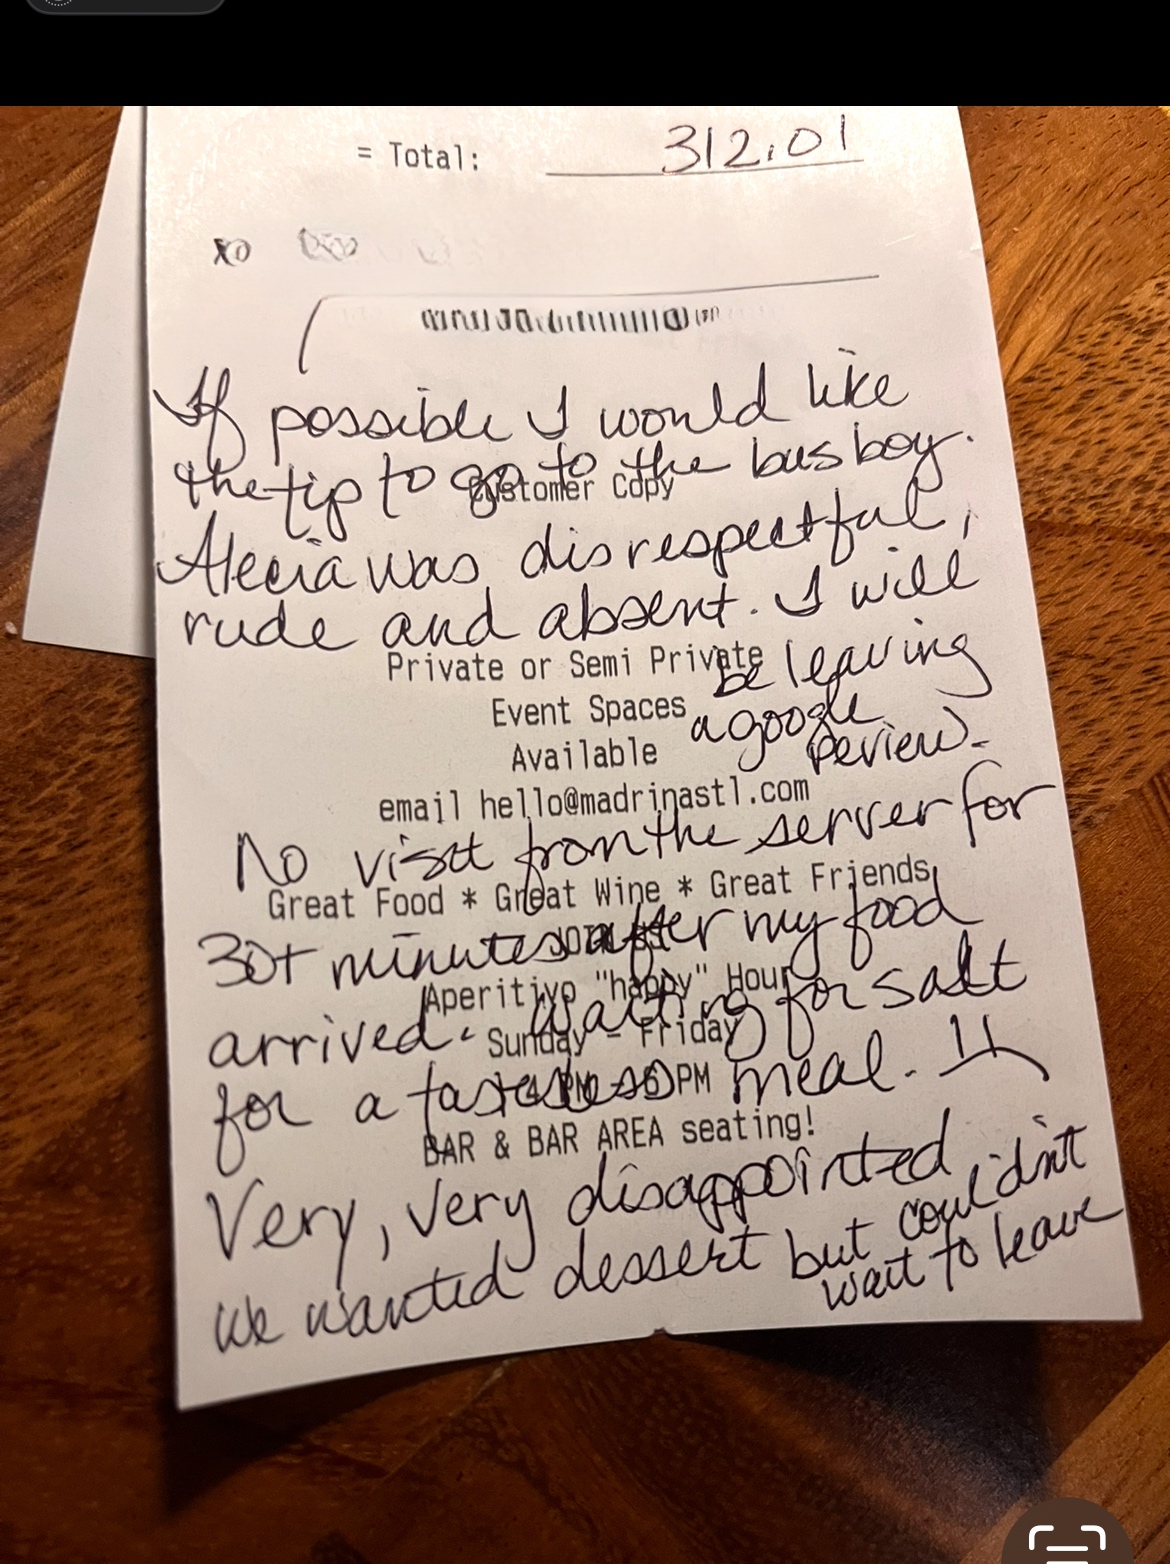 = Total: 312.01
XO
If possible I would like
the tip to go to the bus boy.
Customer Copy
Alecia was disrespectful,
rude and absent. I will
be leaving
Private or Semi Private
Event Spaces
a google
review.
Available
email hello@madrinastl.com
No visit from the server for
Great Food * Great Wine * Great Friends
30+ minutes after my food
Aperitivo "happy" Hour
arrived. Waiting for salt
Sunday - Friday
for a tasteless meal.
PM
BAR & BAR AREA seating!
Very, very disappointed
we wanted dessert but couldn't
wait to leave